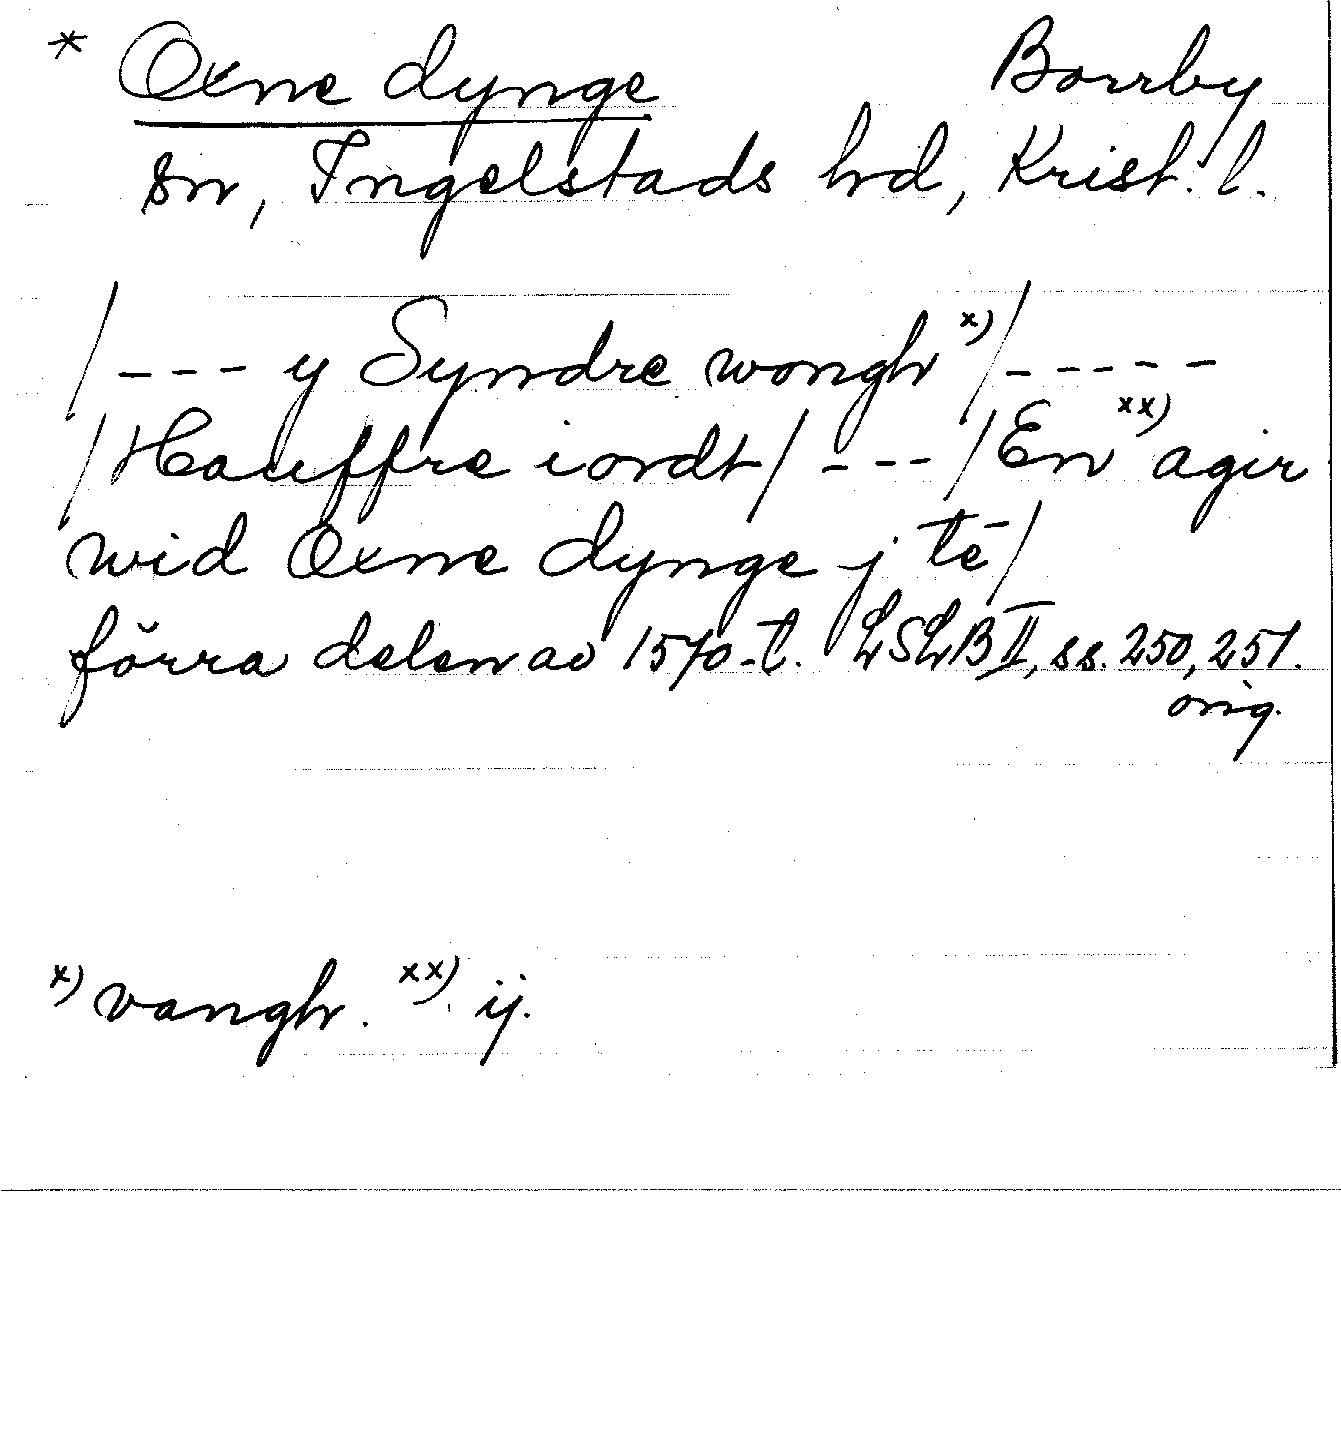 * Oxne dynge Borrby
sn, Ingelstads hd, Krist. l.
/--- y Syndre wongh x)/-----
/Hauffre iordt/ --- /En xx) agir
wid Oxne dynge j tē/
förra delen av 1570-t. LSLB II, ss. 250, 251.
orig.
x) vangh. xx) ij.